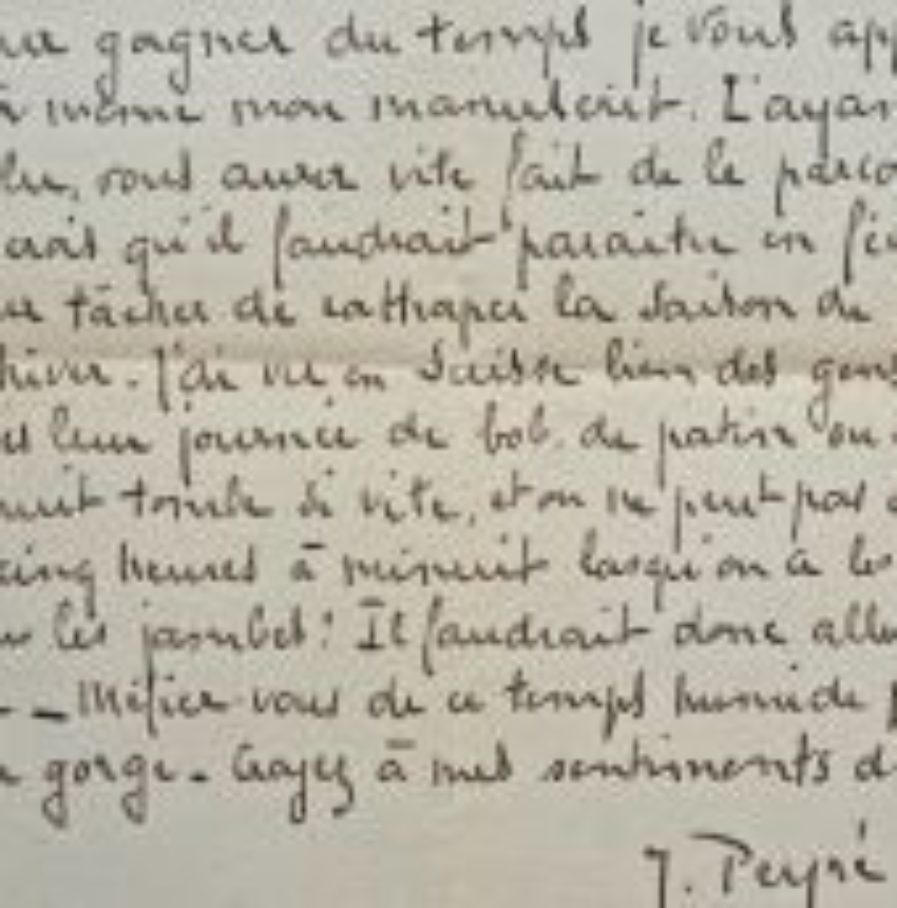 gagner du temps je vous app
même mon manuscrit. L'ayan
lu, vous aurez vite fait de le parco
crois qu'il faudrait paraître en fév
tâcher de rattraper la saison de
hiver. J'ai vu en Suisse bien des gens
leur journée de bob, de patin ou
nuit tombe si vite, et on ne peut pas
cinq heures à minuit lorsqu'on a les
les jambes! Il faudrait donc alle
-- Méfiez-vous de ce temps humide p
gorge - Croyez à mes sentiments d
J. Peyré